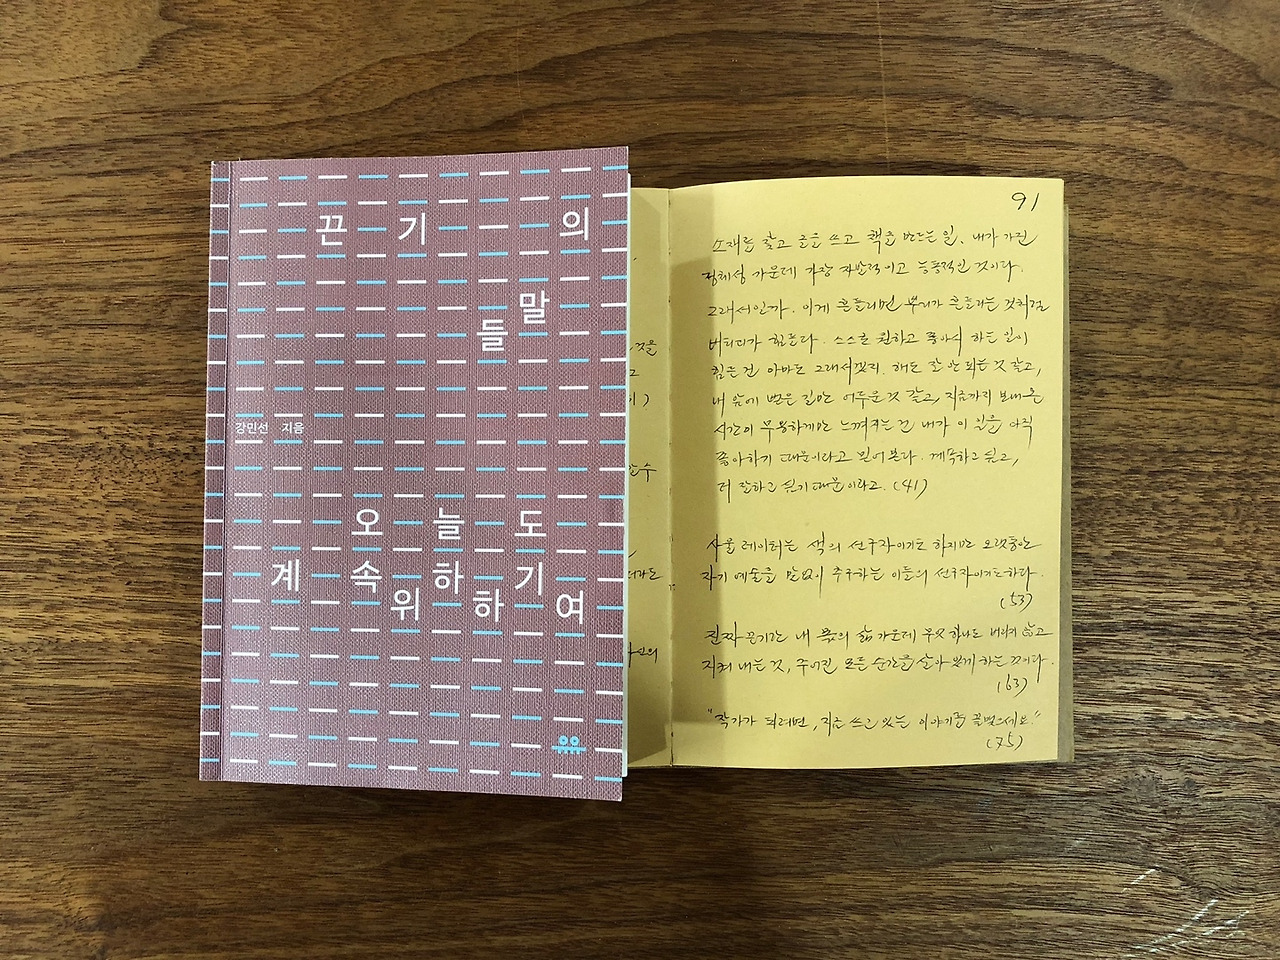 끈기의
말
들
강민선 지음
오늘도
계속하기
위하여
것을
고
91
소재를 찾고 글을 쓰고 책을 만드는 일. 내가 가진
정체성 가운데 가장 자발적이고 능동적인 것이다.
그래서인가. 이게 흔들리면 뿌리가 흔들리는 것처럼
버티기가 힘들다. 스스로 원하고 좋아서 하는 일이
힘든 건 아마도 그래서겠지. 해도 잘 안 되는 것 같고,
내 앞에 뻗은 길만 어두운 것 같고, 지금까지 보내온
시간이 무용하게만 느껴지는 건 내가 이 일을 아직
좋아하기 때문이라고 믿어본다. 계속하고 싶고,
더 잘하고 싶기 때문이라고. (41)
사울 레이터는 색의 선구자이기도 하지만 오랫동안
자기 예술을 말없이 추구하는 이들의 선구자이기도하다.
(53)
진짜 끈기란 내 몫의 삶 가운데 무엇 하나도 버리지 않고
지켜 내는 것, 주어진 모든 순간을 살아 있게 하는 것이다.
(63)
"작가가 되려면, 지금 쓰고 있는 이야기를 끝맺으세요"
(75)